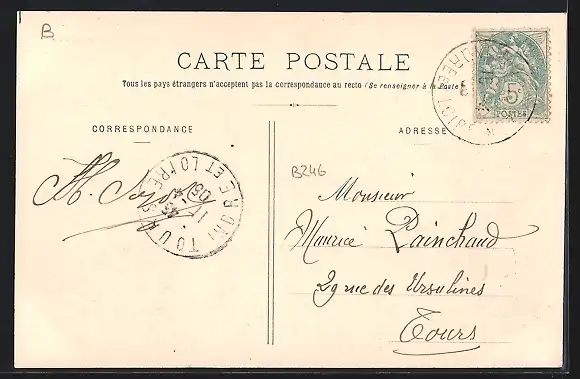 B
CARTE POSTALE
Tous les pays étrangers n'acceptent pas la correspondance au recto (Se renseigner à la Poste)
CORRESPONDANCE
ADRESSE
5c
POSTES
TOURS GARE
ET LOIRE
B246
Monsieur
Maurice Painchaud
29 rue des Ursulines
Tours